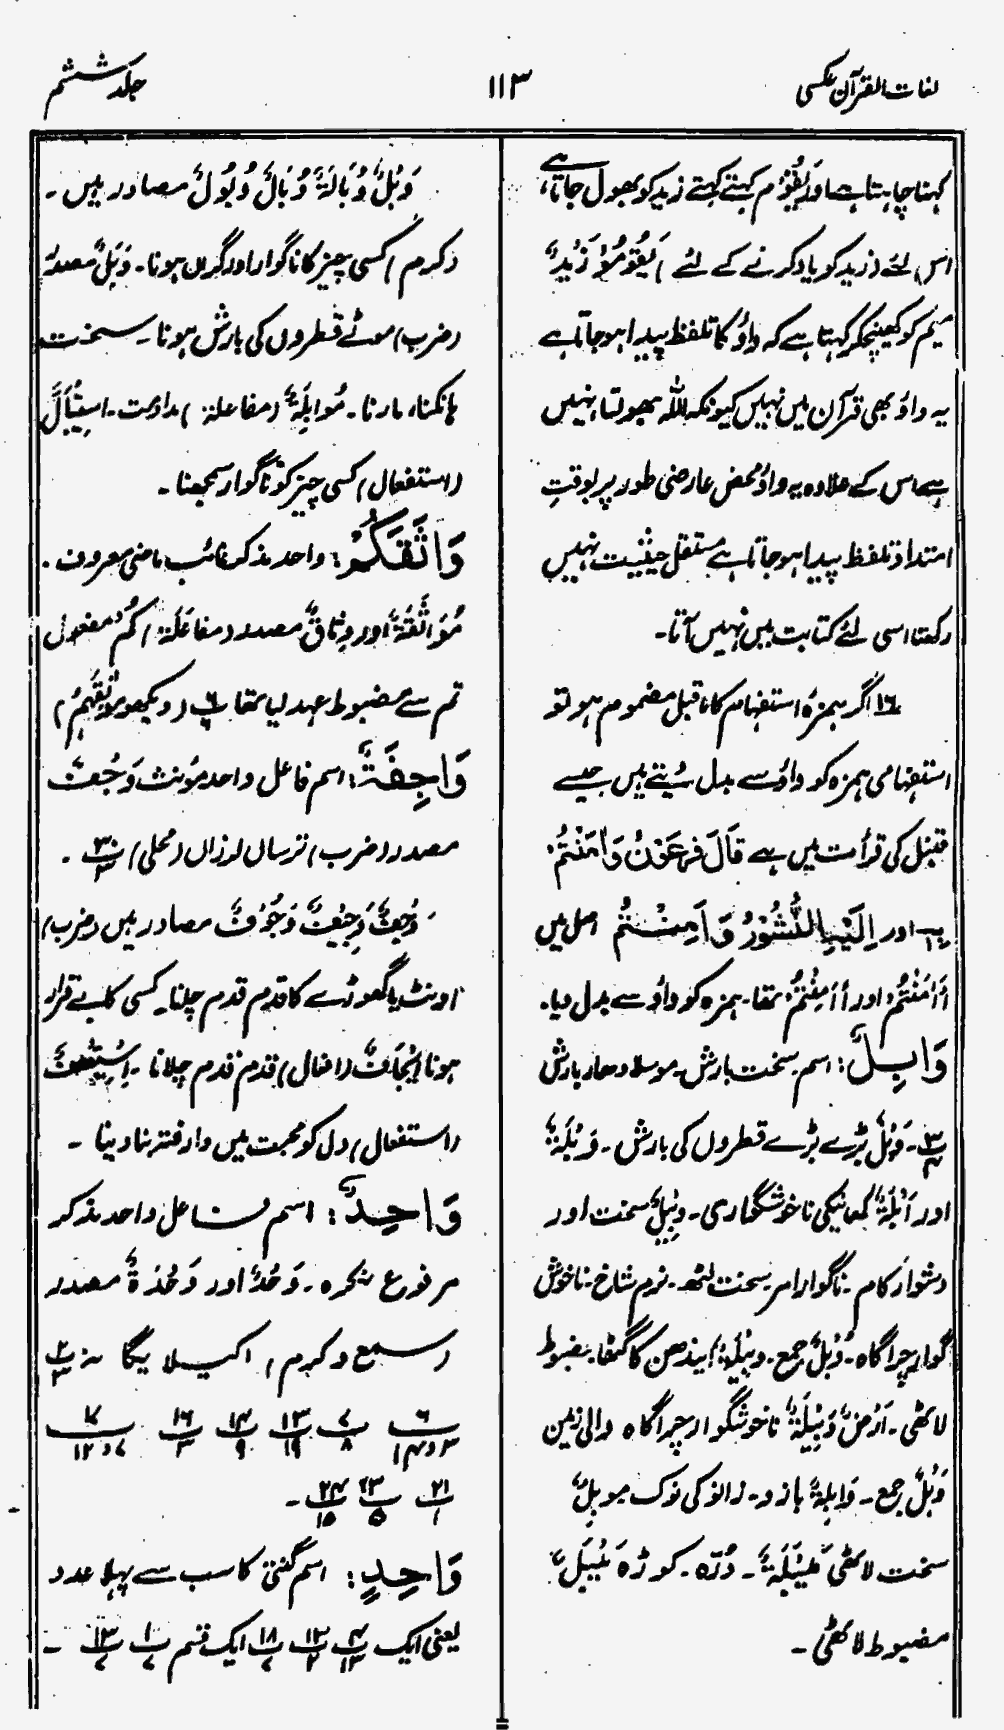 لغات القرآن عکسی
۱۱۳
جلد ششم
کہنا چاہتا ہے اور یَقُوْمُ کہتے کہتے زید کو بھول جاتا ہے،
اس لئے (زید کو یاد کرنے کے لئے) یَقُوْمُوْ زَیْدٌ
میم کو کھینچکر کہتا ہے کہ واؤ کا تلفظ پیدا ہو جاتا ہے
یہ واؤ بھی قرآن میں نہیں کیونکہ اللہ بھولتا نہیں
ہے، اس کے علاوہ یہ واؤ محض عارضی طور پر بوقتِ
امتداد تلفظ پیدا ہو جاتا ہے مستقل حیثیت نہیں
رکھتا اسی لئے کتابت میں نہیں آتا۔
۱۶ اگر ہمزہ استفہام کا ماقبل مضموم ہو تو
استفہامی ہمزہ کو واؤ سے بدل دیتے ہیں جیسے
قنبل کی قرأت میں ہے قَالَ فِرْعَوْنُ وَاٰمَنْتُمْ
اور اِلَیْہِ النُّشُوْرُ وَاَمِنْتُمْ اصل میں
أَاٰمَنْتُمْ اور أَاَمِنْتُمْ تھا۔ ہمزہ کو واؤ سے بدل دیا۔
وَابِلٌ: اسم۔ سخت بارش۔ موسلا دھار بارش
۳ ۴۔ وَبْلٌ بڑے بڑے قطروں کی بارش۔ وَبَلَۃٌ
اور اَبَلَۃٌ کھانیکی ناخوشگواری۔ وَبِیْلٌ سخت اور
دشوار کام۔ ناگوار امر۔ سخت لٹھ۔ نرم شاخ۔ ناخوش
گوار چراگاہ۔ وُبُلٌ جمع۔ وَبِیْلَۃٌ ایندھن کا گٹھا۔ مضبوط
لاٹھی۔ اَرْضٌ وَبِیْلَۃٌ ناخوشگوار چراگاہ والی زمین
وُبُلٌ جمع۔ وَابِلَۃٌ بازو۔ زانو کی نوک مَوْبِلٌ
سخت لاٹھی مِیْبَلَۃٌ۔ دُرّہ۔ کوڑہ مِیْبَلٌ
مضبوط لاٹھی۔
وَبْلٌ وَبَالَۃٌ وَبَالٌ وُبُوْلٌ مصادر ہیں۔
(کرم) کسی چیز کا ناگوار اور گراں ہونا۔ وَبْلٌ مصدر
(ضرب) موٹے قطروں کی بارش ہونا۔ سخت
ہانکنا، مارنا۔ مُوَابَلَۃٌ (مفاعلۃ) مداومت۔ اِسْتِیْبَالٌ
(استفعال) کسی چیز کو ناگوار سمجھنا۔
وَاثَقَکُمْ: واحد مذکر غائب ماضی معروف۔
مُوَاثَقَۃٌ اور وِثَاقٌ مصدر (مفاعَلَۃ) کُمْ مفعول
تم سے مضبوط عہد لیا تھا ۶ (دیکھو مَوْثِقَہُمْ)
وَاجِفَۃٌ: اسم فاعل واحد مؤنث وَجْفٌ
مصدر (ضرب) ترساں لرزاں (محلی) ۳۰ ۳۔
وَجْفٌ وَجِیْفٌ وَجُوْفٌ مصادر ہیں (ضرب)
اونٹ یا گھوڑے کا قدم قدم چلنا۔ کسی کا بے قرار
ہونا اِیْجَافٌ (افعال) قدم قدم چلانا۔ اِسْتِیْجَافٌ
(استفعال) دل کو محبت میں وارفتہ بنا دینا۔
وَاحِدٌ: اسم فاعل واحد مذکر
مرفوع نکرہ۔ وَحْدٌ اور وَحْدَۃٌ مصدر
(سمع و کرم) اکیلا یگانہ ۲ ۳
۶ ۳ و ۱۴ ۷ ۸ ۱۳ ۱۹ ۱۴ ۹ ۱۶ ۳ ۱۷ ۷ و ۱۲
۲۱ ۱ ۲۳ ۵ ۲۴ ۱۵۔
وَاحِدٍ: اسم گنتی کا سب سے پہلا عدد
یعنی ایک ۴ ۱۳ ۱۲ ۲ ۱۸ ۷ ایک قسم ۱ ۷ ۱۳ ۷۔